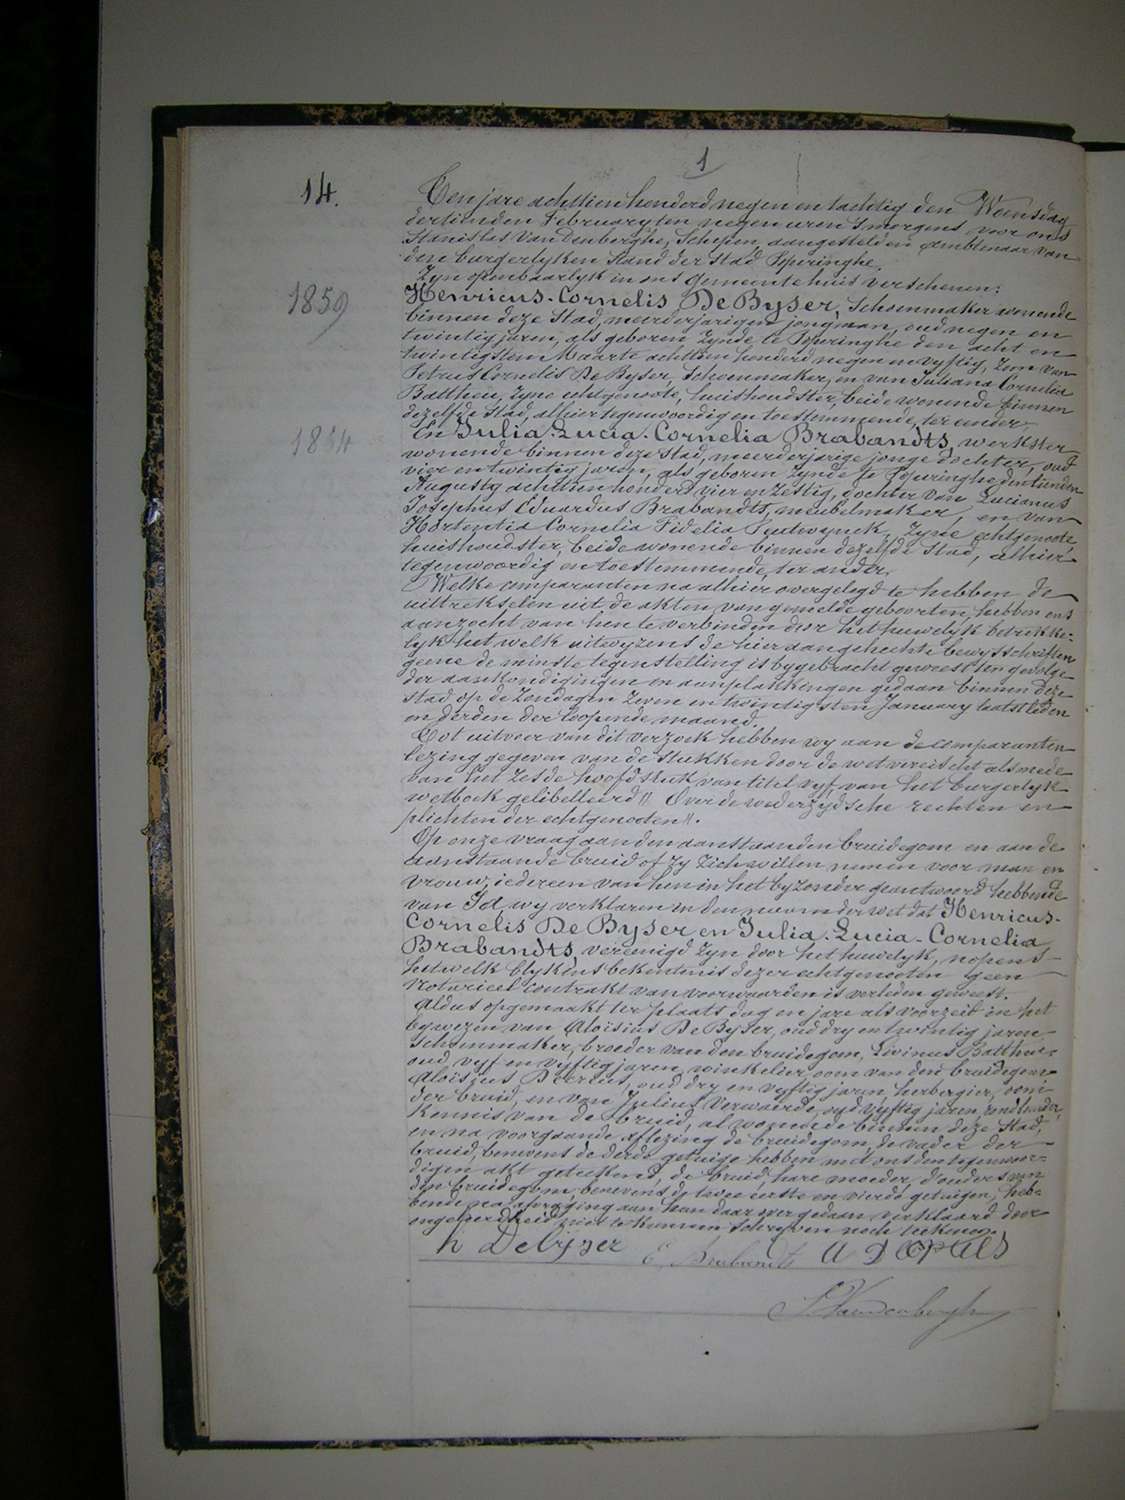 1
14.
Ten jare achttien honderd negen en tachtig den Woensdag
dertienden February ten negen uren 's morgens voor ons
Stanislas Vandenberghe, Schepen, aangestelden Ambtenaar van
den burgerlyken Stand der Stad Poperinghe,
Zyn openbaarlyk in ons Gemeentehuis verschenen:
1859
Henricus-Cornelis De Byser, Schoenmaker wonende
binnen deze Stad, meerderjarigen jongman, oud negen en
twintig jaren, als geboren zynde te Poperinghe den acht en
twintigsten Maarte achttien honderd negen en vyftig, zoon van
Petrus Cornelis De Byser, Schoenmaker, en van Juliana Cornelia
Battheu, zyne echtgenoote, huishoudster, beide wonende binnen
dezelfde Stad, alhier tegenwoordig en toestemmende, ter eender.
1854
En Julia-Lucia-Cornelia Brabandts, werkster
wonende binnen deze stad, meerderjarige jonge dochter, oud
vier en twintig jaren, als geboren zynde te Poperinghe den tienden
Augusty achttien honderd vier en zestig, dochter van Lucianus
Josephus Eduardus Brabandts, meubelmaker, en van
Hortentia Cornelia Fidelia, zyne echtgenoote
huishoudster, beide wonende binnen dezelfde Stad, alhier
tegenwoordig en toestemmende, ter ander.
Welke comparanten na alhier overgelegd te hebben de
uittrekselen uit de akten van gemelde geboorten, hebben ons
aanzocht van hen te verbinden door het huwelyk betrekke-
lyk het welk uitwyzens de hier aangehechte bewysschriften
geene de minste tegenstelling is bygebracht geweest ten gevolge
der aankondigingen en aanplakkingen gedaan binnen deze
stad op de Zondagen zeven en twintigsten January laatstleden
en derden der loopende maand.
Tot uitvoer van dit verzoek hebben wy aan de comparanten
lezing gegeven van de stukken door de wet vereischt alsmede
van het zesde hoofdstuk van titel vyf van het burgerlyk
wetboek gelibelleerd " Over de wederzydsche rechten en
plichten der echtgenooten ".
Op onze vraag aan den aanstaanden bruidegom en aan de
aanstaande bruid of zy zich willen nemen voor man en
vrouw, iedereen van hen in het byzonder geantwoord hebbende
van Ja wy verklaren in den naam der wet dat Henricus-
Cornelis De Byser en Julia-Lucia-Cornelia
Brabandts, vereenigd zyn door het huwelyk, nopens
hetwelk blykens bekentenis dezer echtgenooten geen
Notarieel contrakt van voorwaarden is verleden geweest.
Aldus opgemaakt ter plaats dag en jare als voorzeid in het
bywezen van Aloisius De Byser, oud dry en twintig jaren
Schoenmaker, broeder van den bruidegom, Livinus Battheu
oud vyf en vyftig jaren, winkelier, oom van den bruidegom
Aloisius, oud dry en vyftig jaren, herbergier, oom
der bruid, en van Julius Verwaerde, oud vyftig jaren,
kennis van de bruid, al wonende binnen deze Stad,
en na voorgaande aflezing de bruidegom, de vader der
bruid, benevens de derde getuige hebben met ons den tegenwoor-
digen akt geteekend, de bruid, hare moeder, d'ouders van
den bruidegom, benevens de twee eerste en vierde getuigen, heb-
bende na afvraging aan hen daarover gedaan verklaard door
ongeleerdheid niet te kunnen schryven noch teekenen.
h Debyser E. Brabandts
S. Vandenberghe